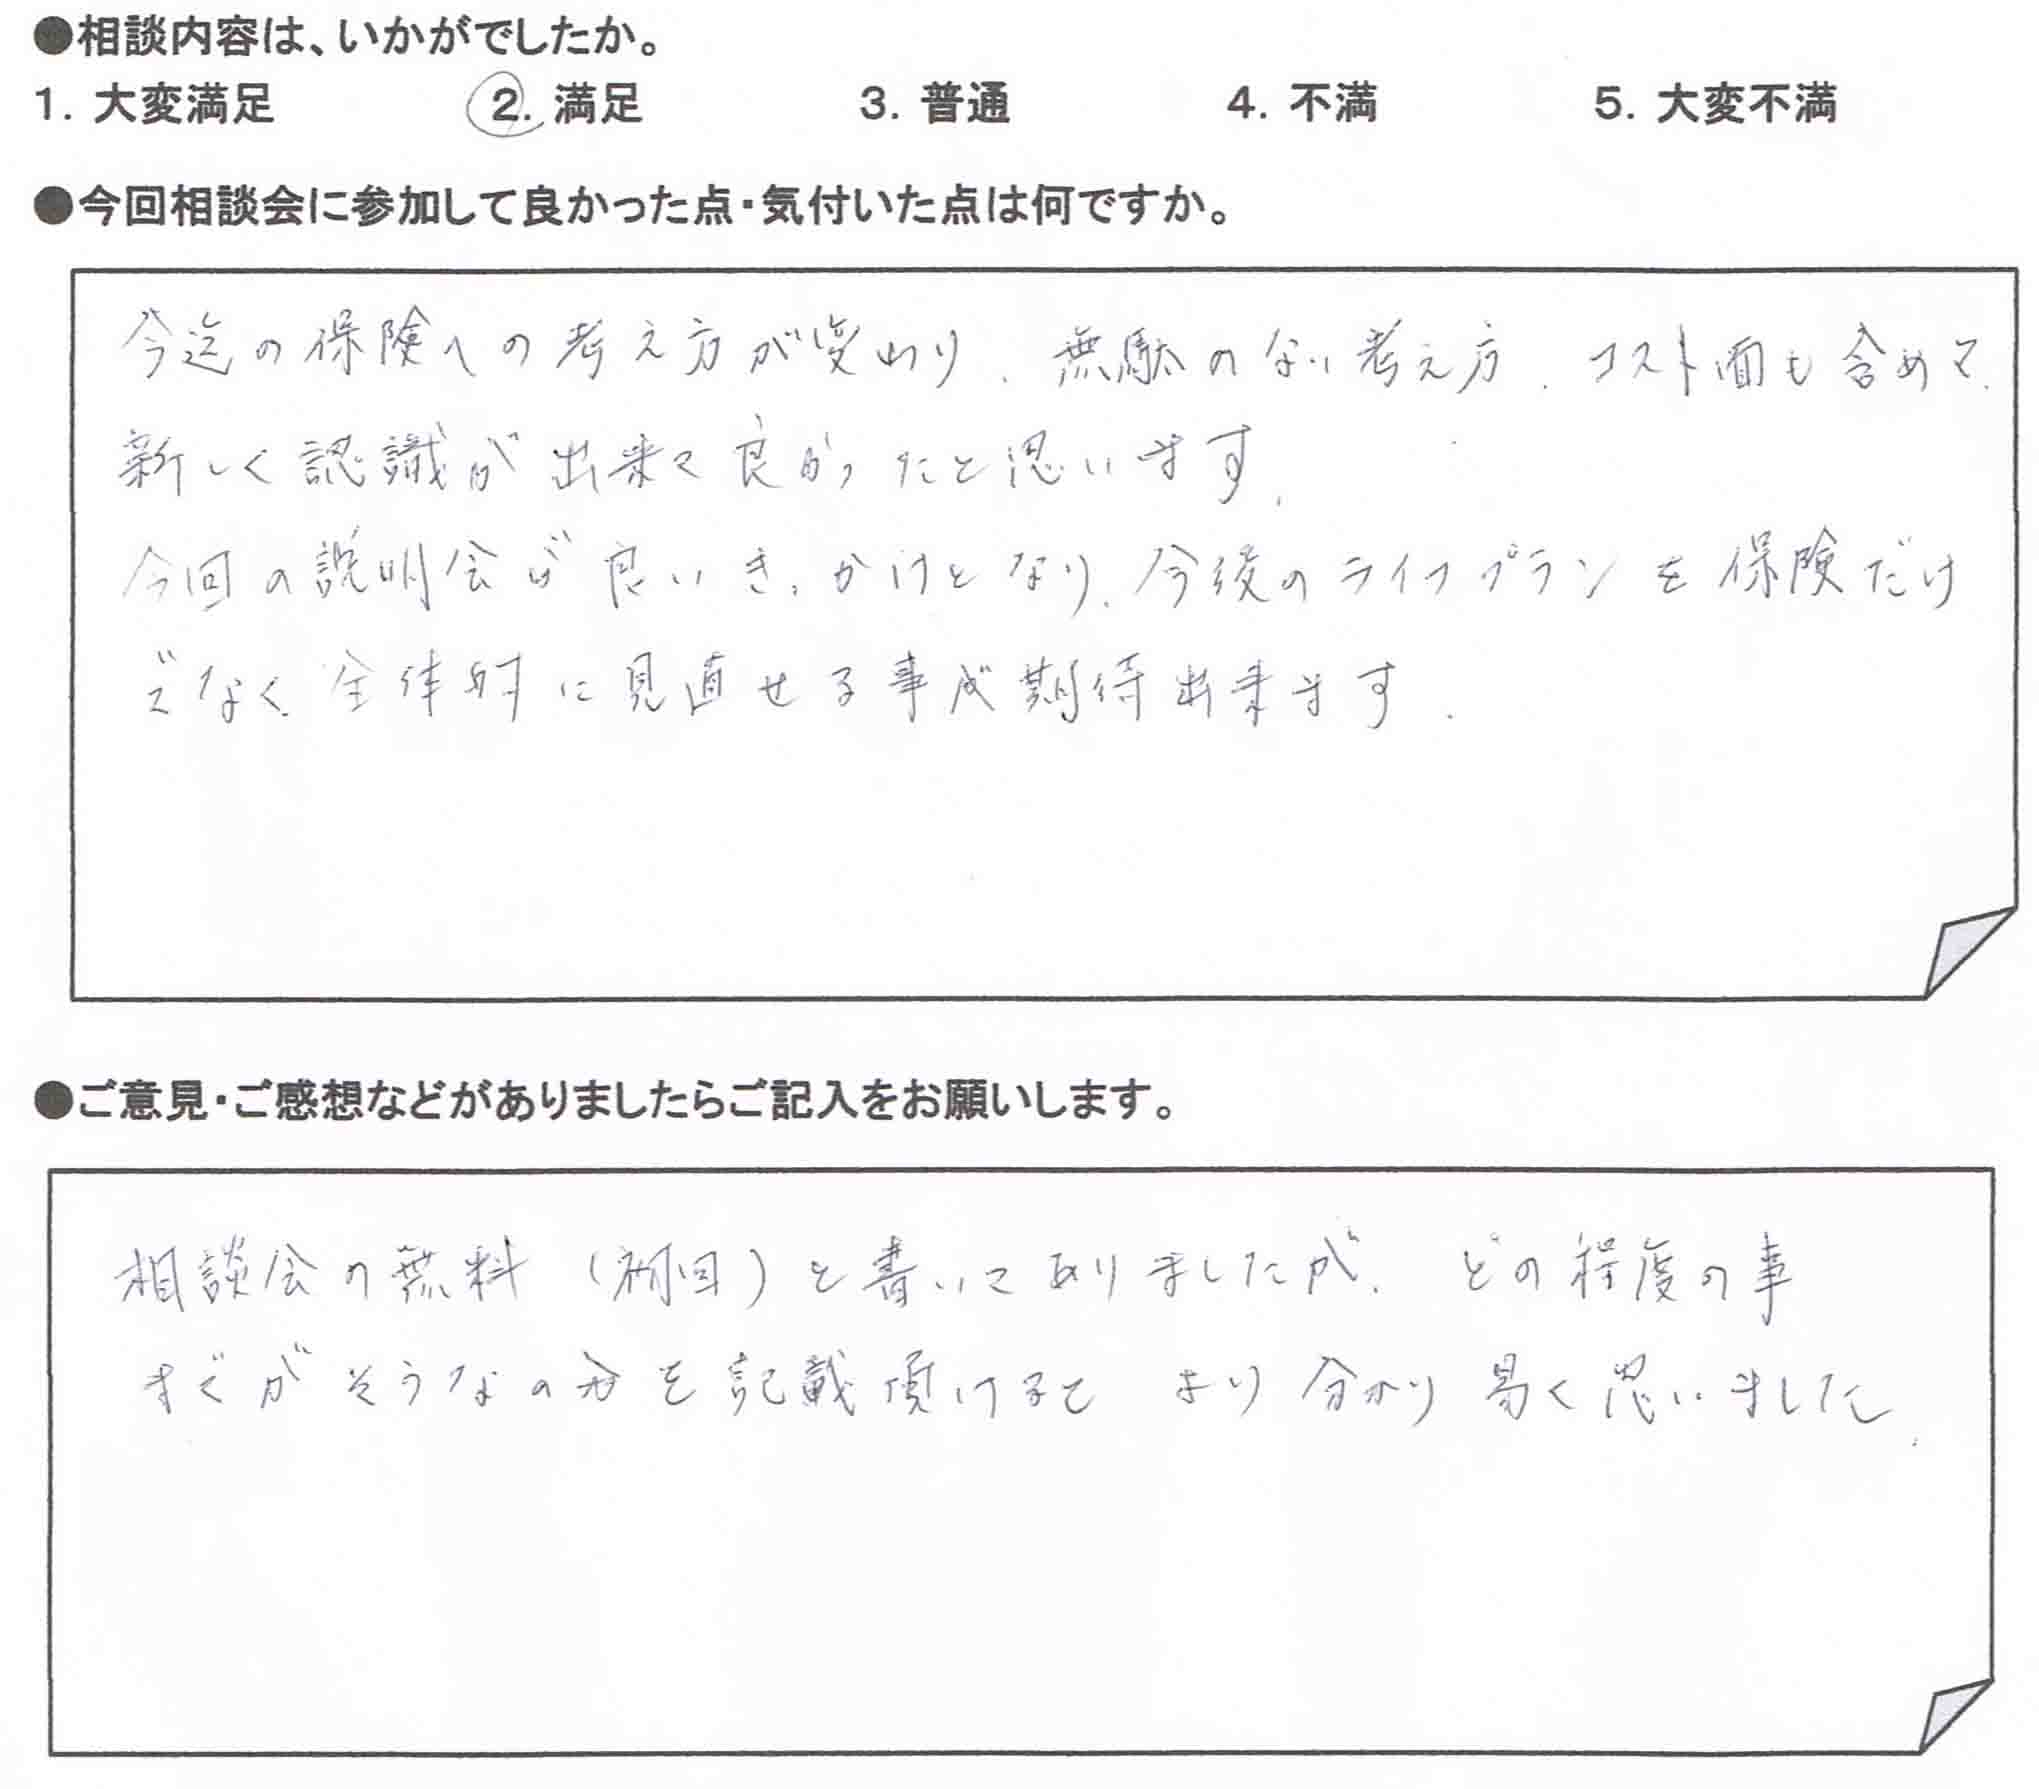 ●相談内容は、いかがでしたか。
1. 大変満足　2. 満足　3. 普通　4. 不満　5. 大変不満
●今回相談会に参加して良かった点・気付いた点は何ですか。
今迄の保険への考え方が変わり、無駄のない考え方、コスト面も含めて、
新しく認識が出来て良かったと思います。
今回の説明会が良いきっかけとなり、今後のライフプランを保険だけ
でなく、全体的に見直せる事が期待出来ます。
●ご意見・ご感想などがありましたらご記入をお願いします。
相談会の無料（初回）と書いてありましたが、どの程度の事
までがそうなのかを記載頂けると より分かり易く思いました。